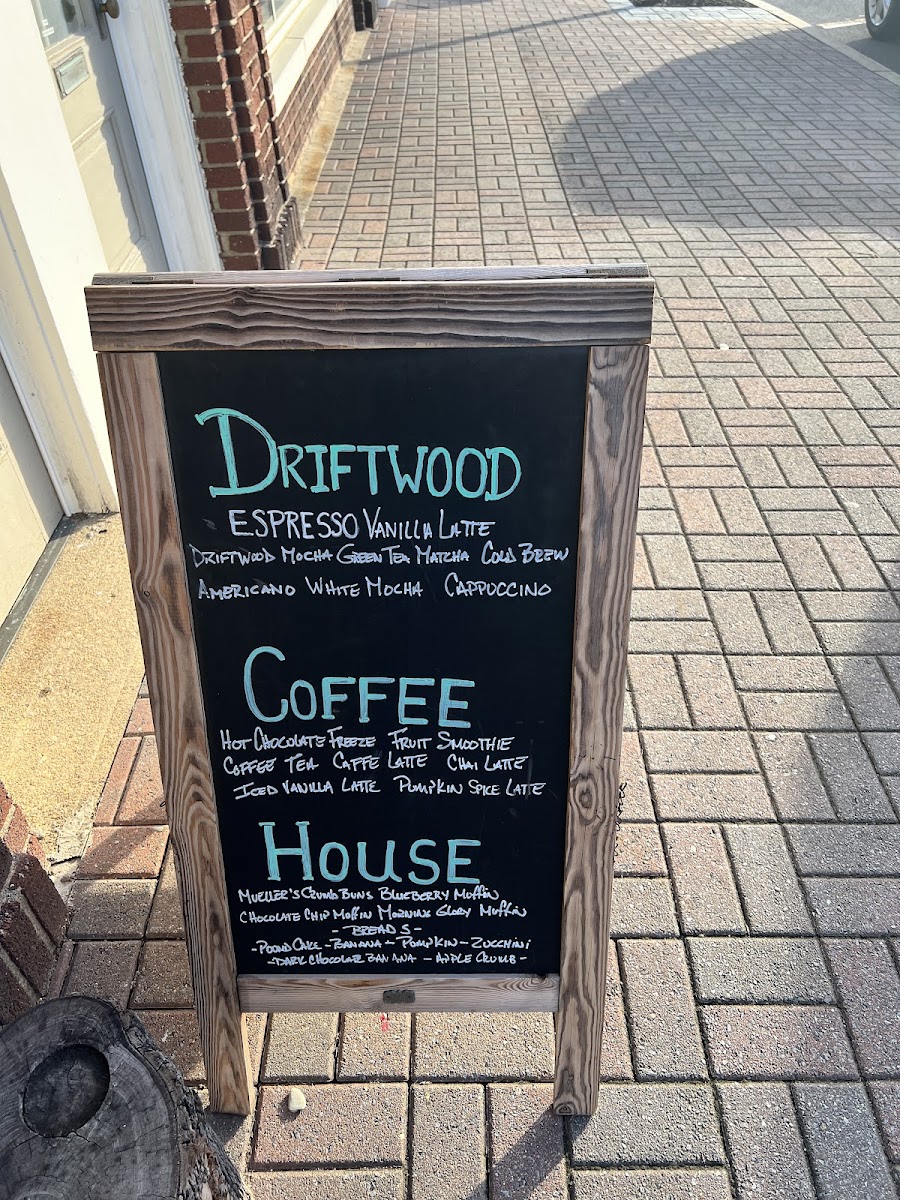 DRIFTWOOD
ESPRESSO VANILLA LATTE
DRIFTWOOD MOCHA GREEN TEA MATCHA COLD BREW
AMERICANO WHITE MOCHA CAPPUCCINO
COFFEE
HOT CHOCOLATE FREEZE FRUIT SMOOTHIE
COFFEE TEA CAFFE LATTE CHAI LATTE
ICED VANILLA LATTE PUMPKIN SPICE LATTE
HOUSE
MUELLER'S CRUMB BUNS BLUEBERRY MUFFIN
CHOCOLATE CHIP MUFFIN MORNING GLORY MUFFIN
- BREADS -
- POUND CAKE - BANANA - PUMPKIN - ZUCCHINI
- DARK CHOCOLATE BANANA - APPLE CRUMB -